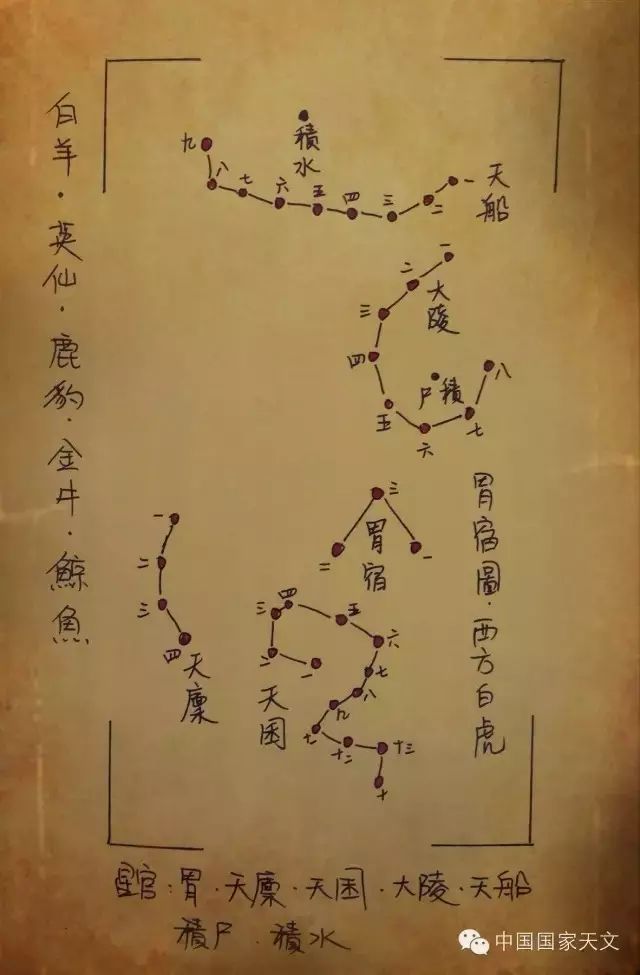 白羊·英仙·鹿豹·金牛·鲸魚
積水
九
八
七
六
五
四
三
二
一
天船
一
二
三
四
五
六
七
八
大陵
積尸
三
二
一
胃宿
胃宿圖·西方白虎
一
二
三
四
天廩
四
三
二
一
五
六
七
八
九
十二
十三
十
天囷
星官:胃·天廩·天囷·大陵·天船
積尸·積水
中国国家天文